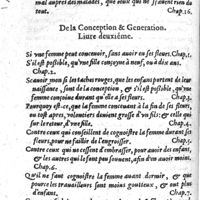 mal aupres des malades, que ceux qui ne sçauent rien du
tout. Chap.16.
De la Conception & Generation.
Liure deuxiéme.
Si vne femme peut conceuoir, sans auoir eu ses fleurs. Chap.1.
S'il est possible, qu'vne fille conçoyue à neuf, ou à dix ans.
Chap.2.
Sçauoir-mon si les taches rouges, que les enfans portent de leur
naissance, sont de la conception, & s'il est possible, qu'vne
femme conçoiue durant qu'elle a ses fleurs. Chap.3.
Pourquoy est-ce, que la femme conceuant à la fin de ses fleurs,
ou tost apres, volontiers deuient grosse d'vn fils: & celle qui
sur le retour, d'vne fille. Chap.4.
Contre ceux qui conseillent de cognoistre la femme durant ses
fleurs, pour ne faillir de l'engrosser. Chap.5.
Contre ceux qui ne cessent d'embrasser, pour auoir des enfans,
& les autres qui le font peu souuent, afin de n'en auoir moins.
Chap.6.
Qu'il ne faut cognoistre la femme auant dormir, & que
pource les trauailleurs sont moins goutteux, & ont plus
d'enfans. Chap.7.